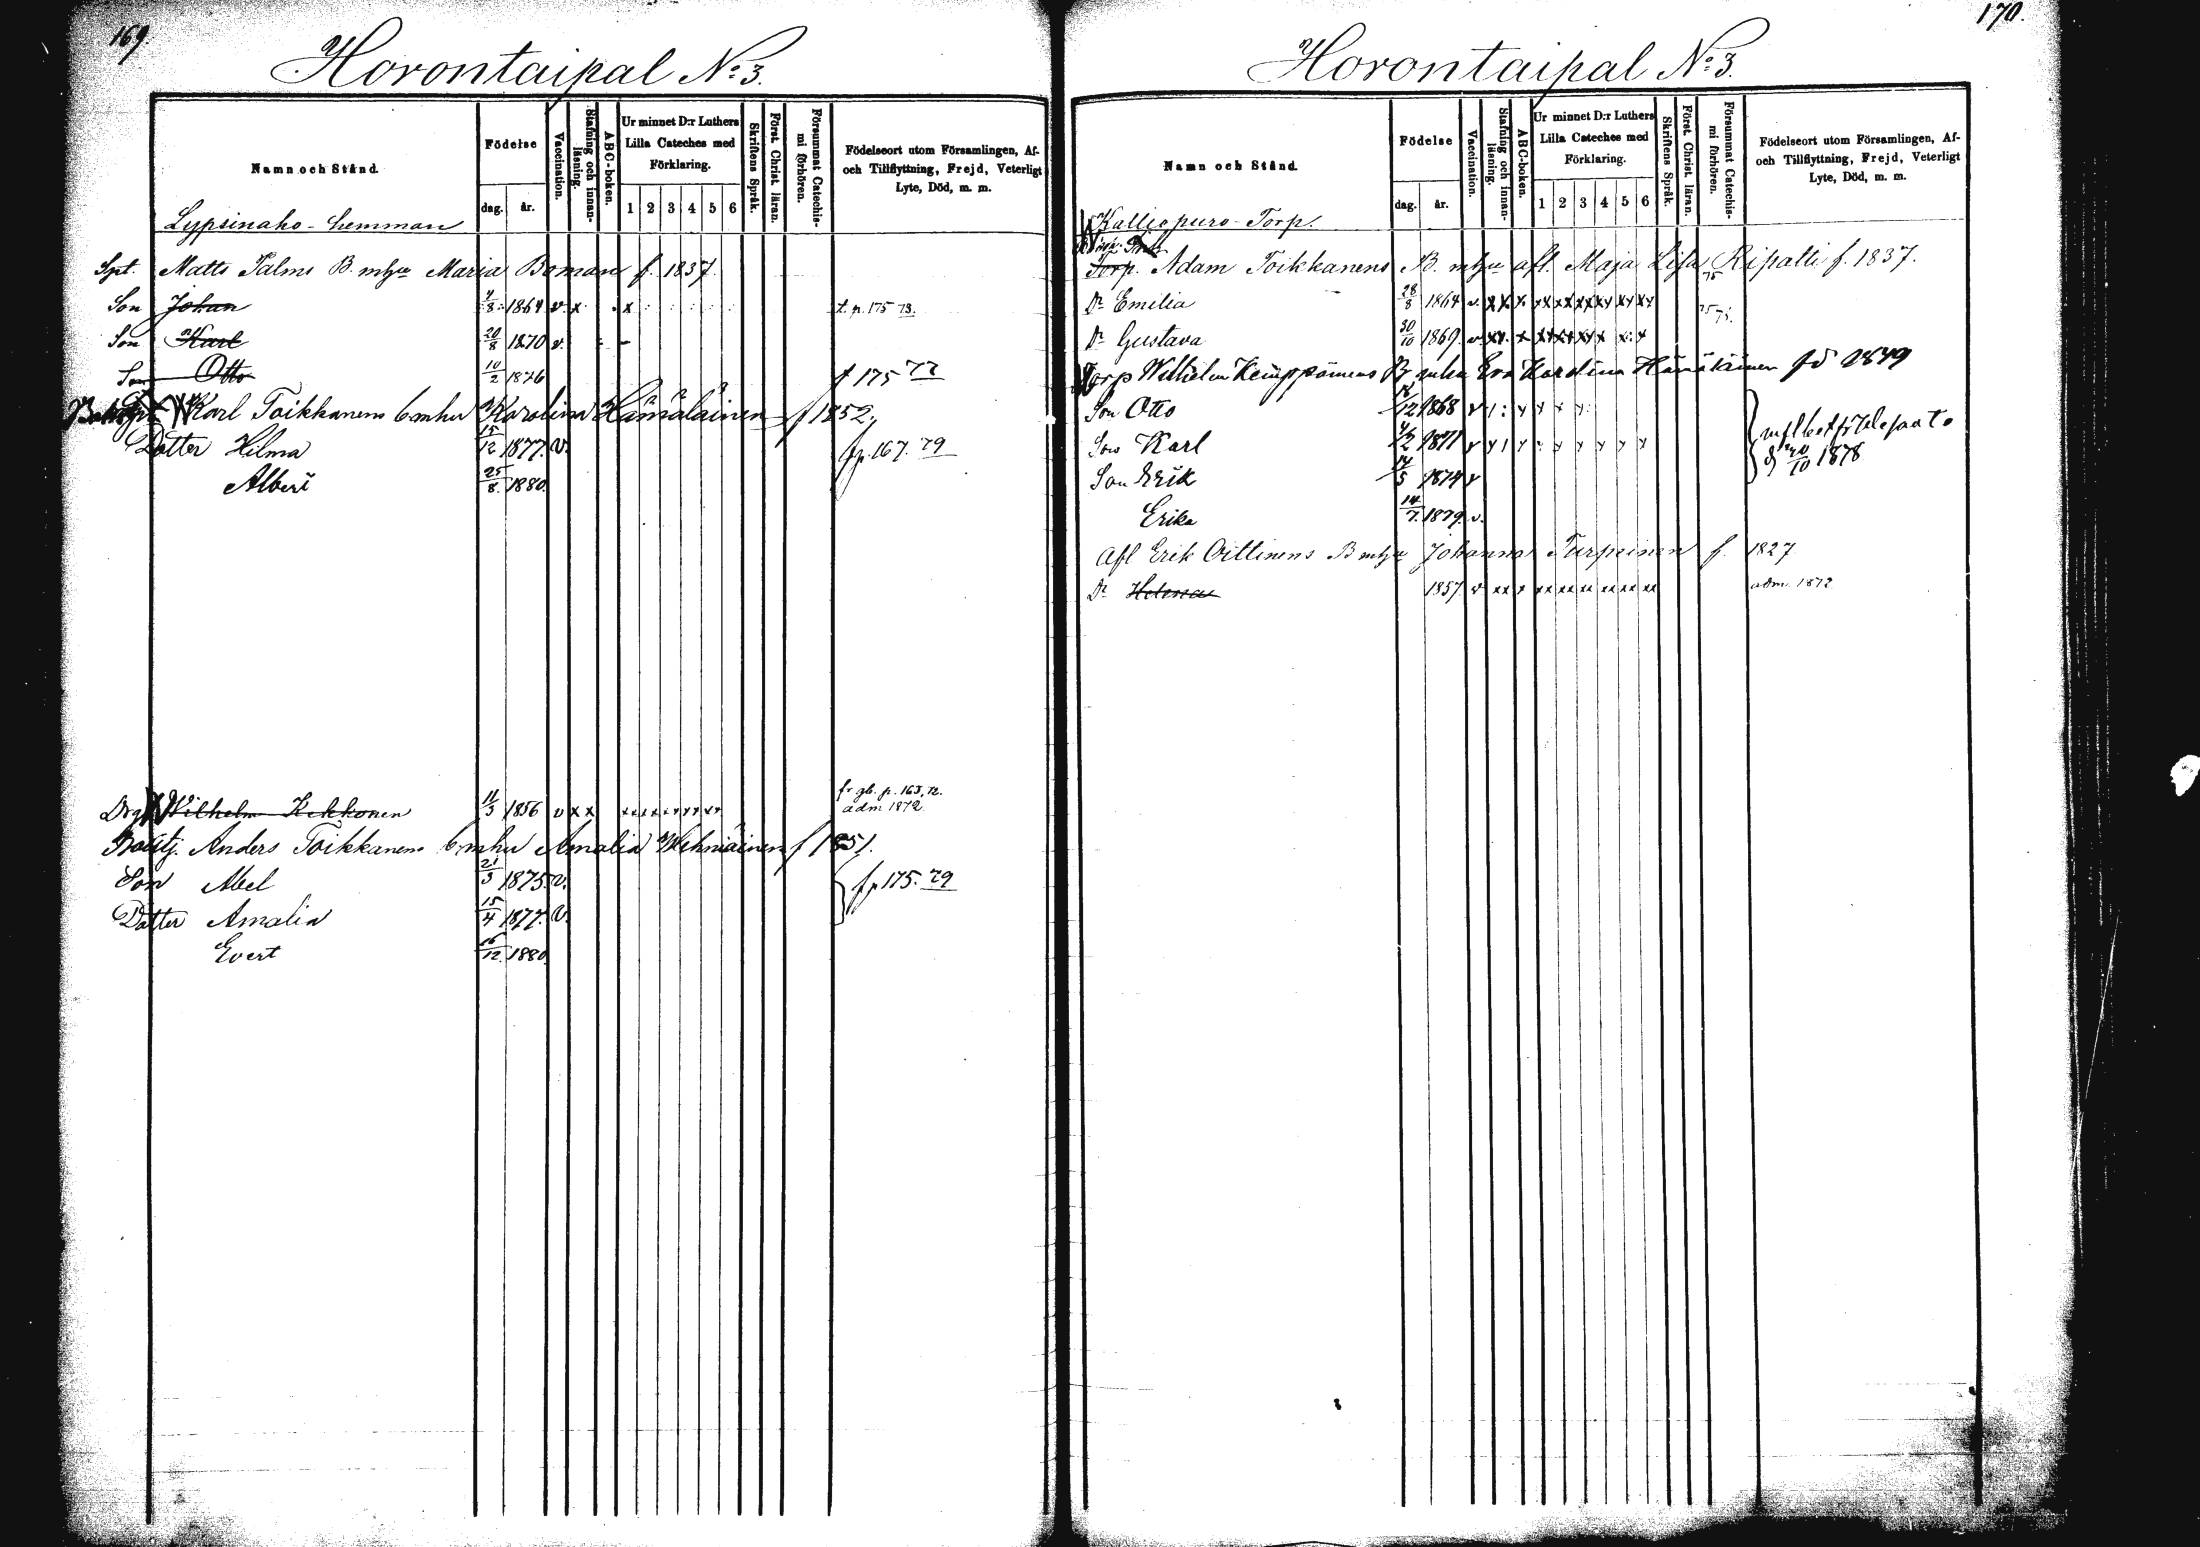 169.
Horontaipal No 3.
Namn och Stånd.
Födelse
dag. år.
Vaccination.
Stafning och innanläsning.
ABC-boken.
Ur minnet D:r Luthers Lilla Cateches med Förklaring.
1 2 3 4 5 6
Skriftens Språk.
Först. Christ. läran.
Försummat Catechismi förhören.
Födelseort utom Församlingen, Af- och Tillflyttning, Frejd, Veterligt Lyte, Död, m. m.
Lypsinaho-hemman
Spt. Matts Palms B. mhu Maria Boman f. 1837.
Son Johan 4/8 1864 v. x x t. p. 175 73.
Son Karl 20/8 1870 v.
Son Otto 10/2 1876 175 77
Karl Toikkanens b mhu Karolina Hämäläinen f 1852,
Dotter Hilma 15/12 1877. v. fp. 167. 79
Albert 25/8. 1880.
Drg Wilhelm Kekkonen 11/3 1856 v x x xx xx xx xx xx fr gb. p. 163, 72. adm 1872
Anders Toikkanens b mhu Amalia f 1851.
Son Abel 21/3 1875. v.
Dotter Amalia 15/4 1877. v. fp 175. 79
Evert 16/12 1880.
170.
Horontaipal No 3.
Namn och Stånd.
Födelse
dag. år.
Vaccination.
Stafning och innanläsning.
ABC-boken.
Ur minnet D:r Luthers Lilla Cateches med Förklaring.
1 2 3 4 5 6
Skriftens Språk.
Först. Christ. läran.
Försummat Catechismi förhören.
Födelseort utom Församlingen, Af- och Tillflyttning, Frejd, Veterligt Lyte, Död, m. m.
Kalliopuro-Torp.
Torp. Adam Toikkanens B. mhu afl. Maja Lisa Ripatti f. 1837.
Dr Emilia 28/8 1864 v. xx x xx xx xx xy xy xy 75
Dr Gustava 30/10 1869. v. xx. x xx xx xy x x: x 75.
Torp Wilhelm Kemppainens B mhu Eva Karolina Hämäläinen fö 1849
Son Otto 16/12 1868 y
Son Karl 4/2 1871 y
Son Erik 14/5 1874 y
d 20/10 1878
Erika 14/7. 1879. v.
Afl Erik Oittinens B mhu Johanna Turpeinen f. 1827
Dr Helena 1857. v xx x xx xx xx xx xx xx adm. 1872